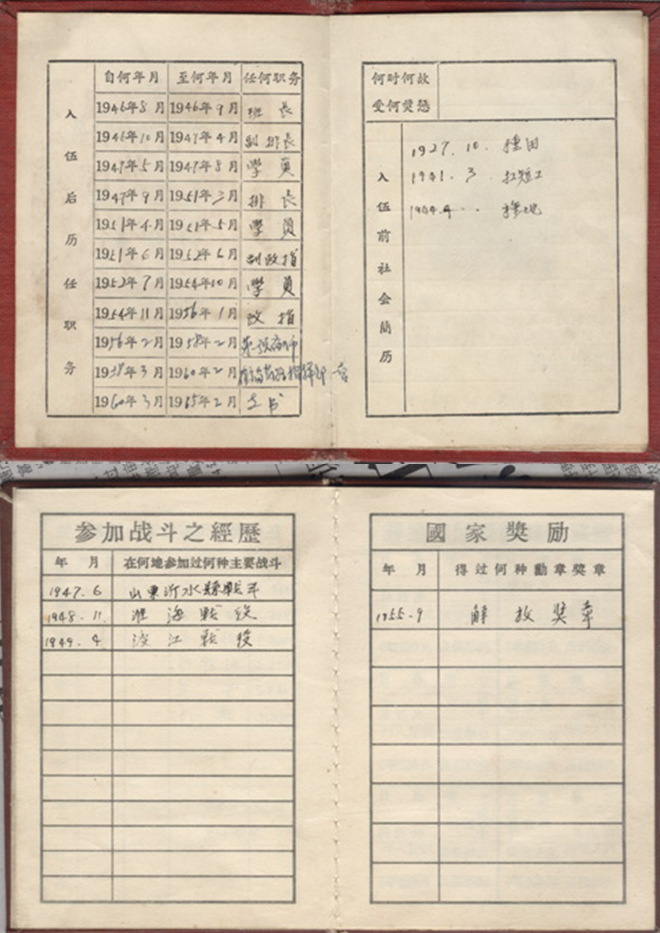 自何年月 至何年月 任何职务
入伍后历任职务
1946年8月 1946年9月 班長
1946年10月 1947年4月 副排長
1947年5月 1947年8月 學員
1947年9月 1951年3月 排長
1951年4月 1951年5月 學員
1951年6月 1952年6月 副政指
1952年7月 1954年10月 學員
1954年11月 1956年1月 政指
1956年2月 1958年2月
1958年3月 1960年2月
1960年3月 1965年2月
何时何故
受何奬懲
入伍前社会简历
1927.10. 種田
1941.3 扛短工
1944.4 種地
参加战斗之經歷
年月 在何地参加过何种主要战斗
1947.6 山東沂水縣戰斗
1948.11. 淮海戰役
1949.4 渡江戰役
國家奬励
年月 得过何种勳章奬章
1955.9 解放奬章